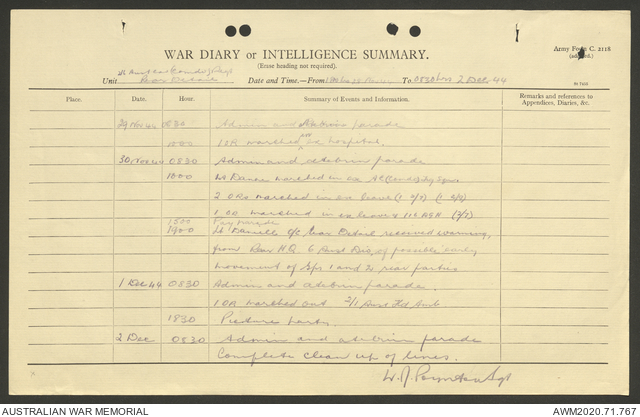 Army Form C. 2118
WAR DIARY or INTELLIGENCE SUMMARY.
(Erase heading not required.)
Unit Rear Details Date and Time.—From To 0830 hrs 2 Dec 44
Place. Date. Hour. Summary of Events and Information. Remarks and references to Appendices, Diaries, &c.
29 Nov 44 0830 Admin and Atebrin parade
1000 1 OR marched ex hospital.
30 Nov 44 0830 Admin and atebrin parade
1000 Lt marched in ex
2 ORs marched in ex leave (1 2/7) (1
1 OR marched in ex leave & 116 AGH (2/7)
1500 Pay Parade
1900 Lt o/c Rear Detail received warning,
from Rear HQ 6 Aust Div, of possible early
movement of Gps 1 and 2 rear parties
1 Dec 44 0830 Admin and atebrin parade.
1 OR marched out 2/1 Aust Fd Amb
1830 Picture party.
2 Dec 0830 Admin and atebrin parade
Complete clean up of lines.
W. J. Sgt
AUSTRALIAN WAR MEMORIAL AWM2020.71.767